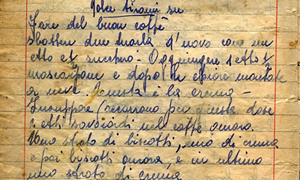 Dolce tirami su
Fare del buon caffè
sbattere due tuorli d'uovo con un
etto di zucchero. Aggiungere 1 etto
mascarpone e dopo le chiare montate
a neve. Questa è la crema -
Inzuppare (occorrono per questa dose
2 etti savoiardi nel caffè amaro.
Uno strato di biscotti, uno di crema
e poi biscotti ancora, e in ultimo
uno strato di crema